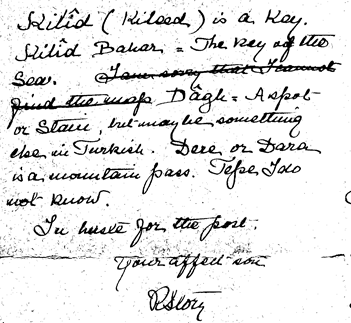 Kilîd (Kileed) is a Key.
Kilîd Bahar = The key of the
Sea. I am sorry that I cannot
find the map Dâgh = A spot
or Stain, but may be something
else in Turkish. Dere or Dara
is a mountain pass. Tepe I do
not know.
In haste for the post.
Your affect son
RStory